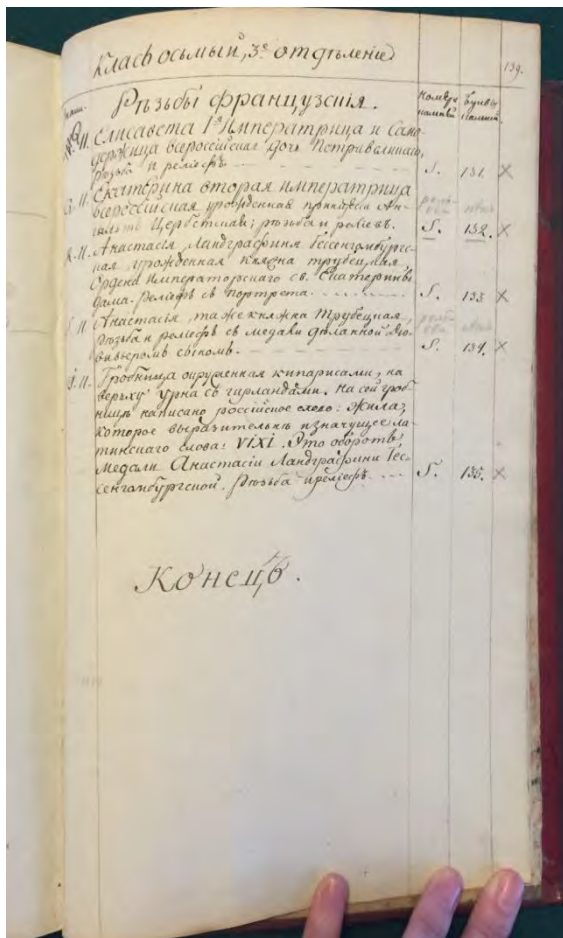 Класъ осьмый, 3е отдѣленіе
139.
Рѣзьбы французскія.
Номера
Буквы
II. Елисавета Iя Императрица и Само-
держица всероссійская дочь Петравеликаго,
рѣзьба и реліефъ. S. 131. ×
II. Екатерина вторая императрица
всероссійская урожденная принцесса Ан-
гальтъ Цербстская; рѣзьба и реліевъ. S. 132. ×
II. Анастасія, Ландграфиня Гессенгомбургс-
кая урожденная княжна трубецкая
Ордена Императорскаго св. Екатерины
дама. реліефъ съ портрета. S. 133 ×
II. Анастасія, таже княжна Трубецкая,
рѣзьба и реліефъ съ медали дѣланной
сыномъ. S. 134. ×
II. Гробница окруженная кипарисами, на
верьху урна съ гирландами. на сей гроб-
ницѣ написано россійское слово: Жила,
которое выразительнѣ означущее ла-
тинскаго слова: VIXI. Это оборотъ
медали Анастасіи Ландграфини Гес-
сенгомбургской. Рѣзьба и реліефъ. S. 135. ×
Конецъ.